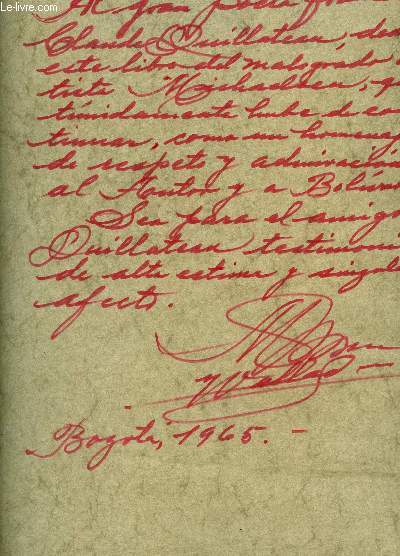 © Le-Livre.com
Al gran poeta
Claude Quillateau, de
este libro del malogrado
tista Michaelsen, q
tímidamente hube de con
tinuar, como un homenaj
de respeto y admiración
al Autor y a Bolívar
Sea para el amigo
Quillateau testimoni
de alta estima y singula
afecto.
Bogotá, 1965.-